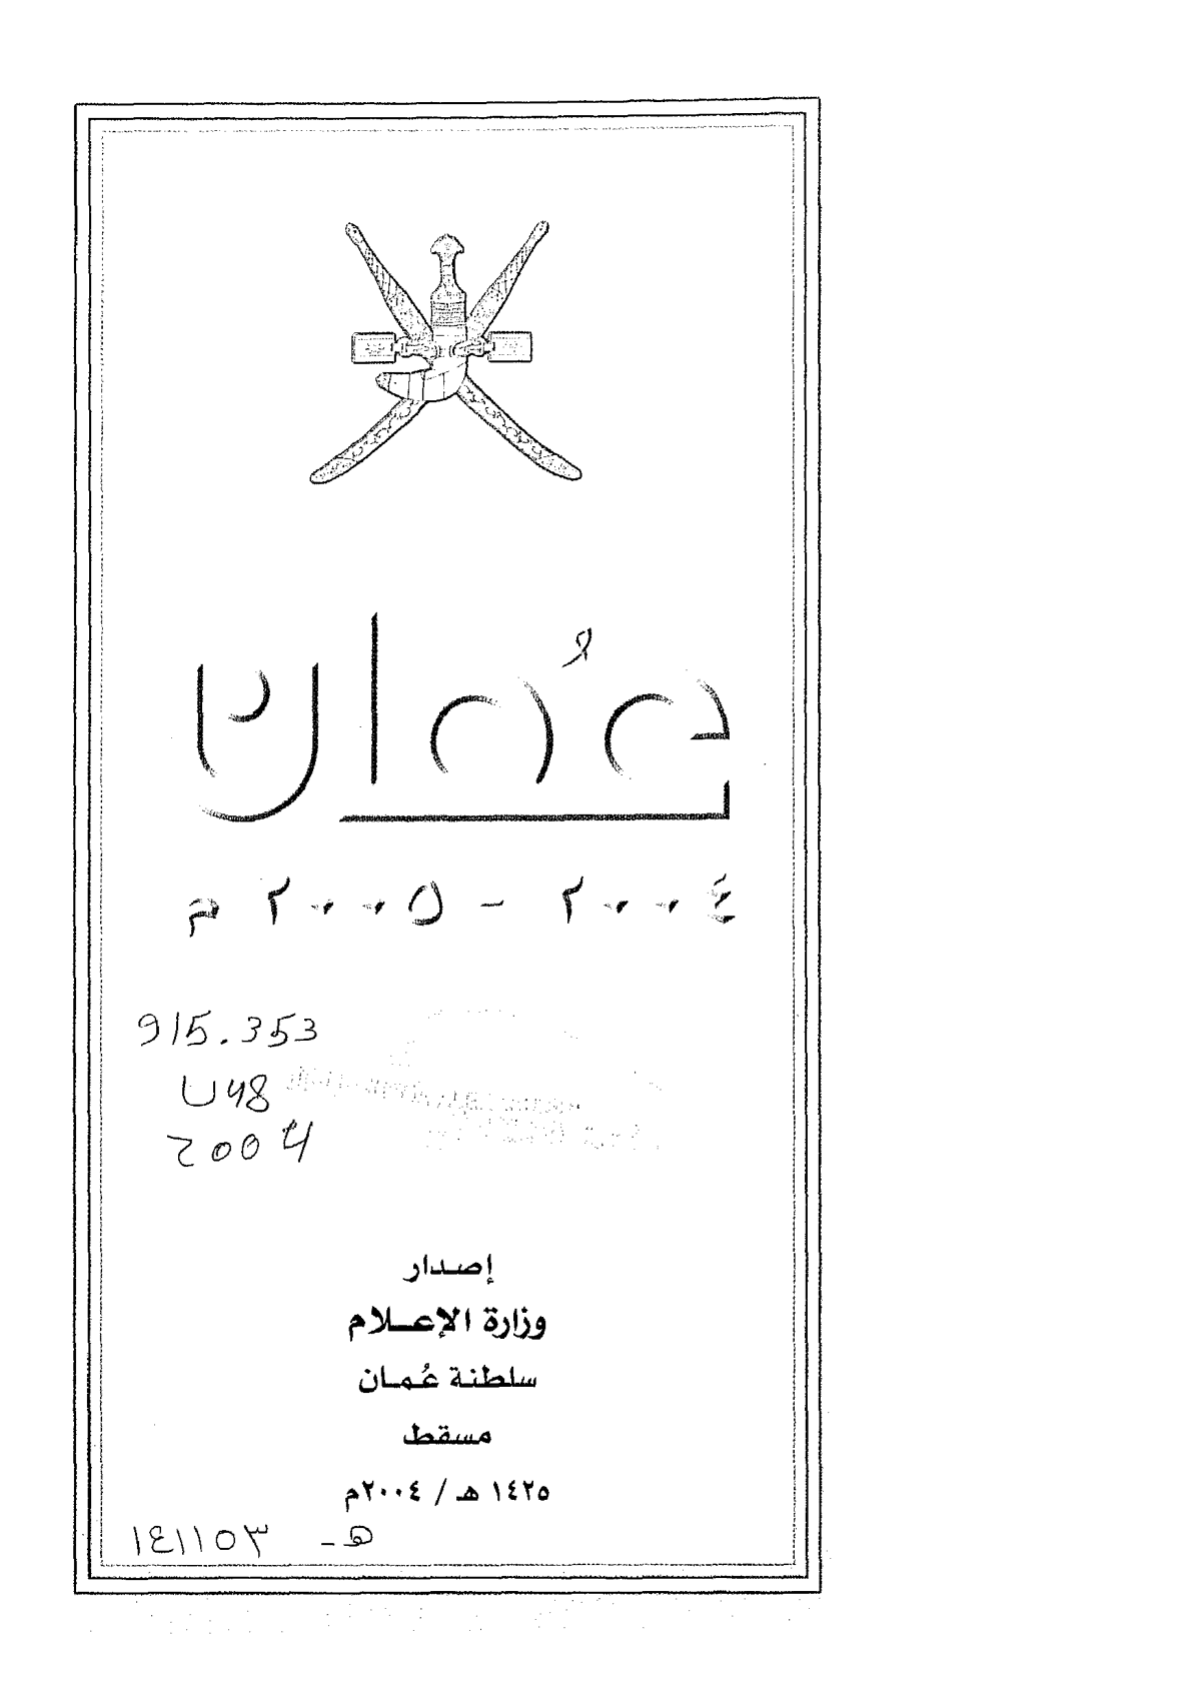 عُمان
٢٠٠٤ - ٢٠٠٥ م
915.353
U48
2004
إصدار
وزارة الإعلام
سلطنة عُمان
مسقط
١٤٢٥ هـ / ٢٠٠٤م
هـ - ١٤١١٥٣